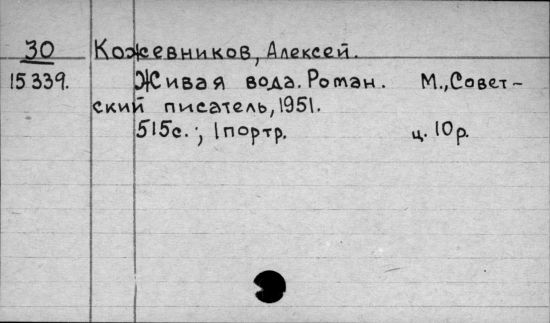 30 Кожевников, Алексей.
15339. Живая вода. Роман. М., Совет-
ский писатель, 1951.
515с.; 1портр. ц. 10р.